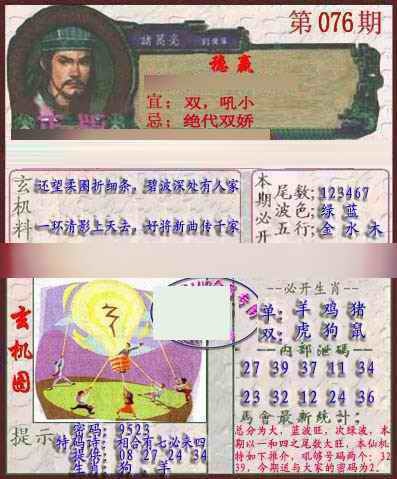 第076期
諸葛亮
穩贏
宜；双，吼小
忌；绝代双娇
玄机料
还望柔圈折细条，碧波深处有人家
一环清影上天去，好将新曲传千家
本期必开
尾数;123467
波色;绿 蓝
五行;金 水 木
玄机图
--必开生肖--
单:羊 鸡 猪
双:虎 狗 鼠
--内部泄码--
27 39 37 11 34
23 32 12 24 36
馬會最新统计:
总分为大，蓝波旺，次绿波，本
期以一和四之尾数大旺，本仙机
特如下推介，吼够号码两个：32
39，今期送与大家的密码为2.
提示
密码: 9523
特码诗:相合有七必来四
提供: 08 27 24 34
生肖: 狗、羊